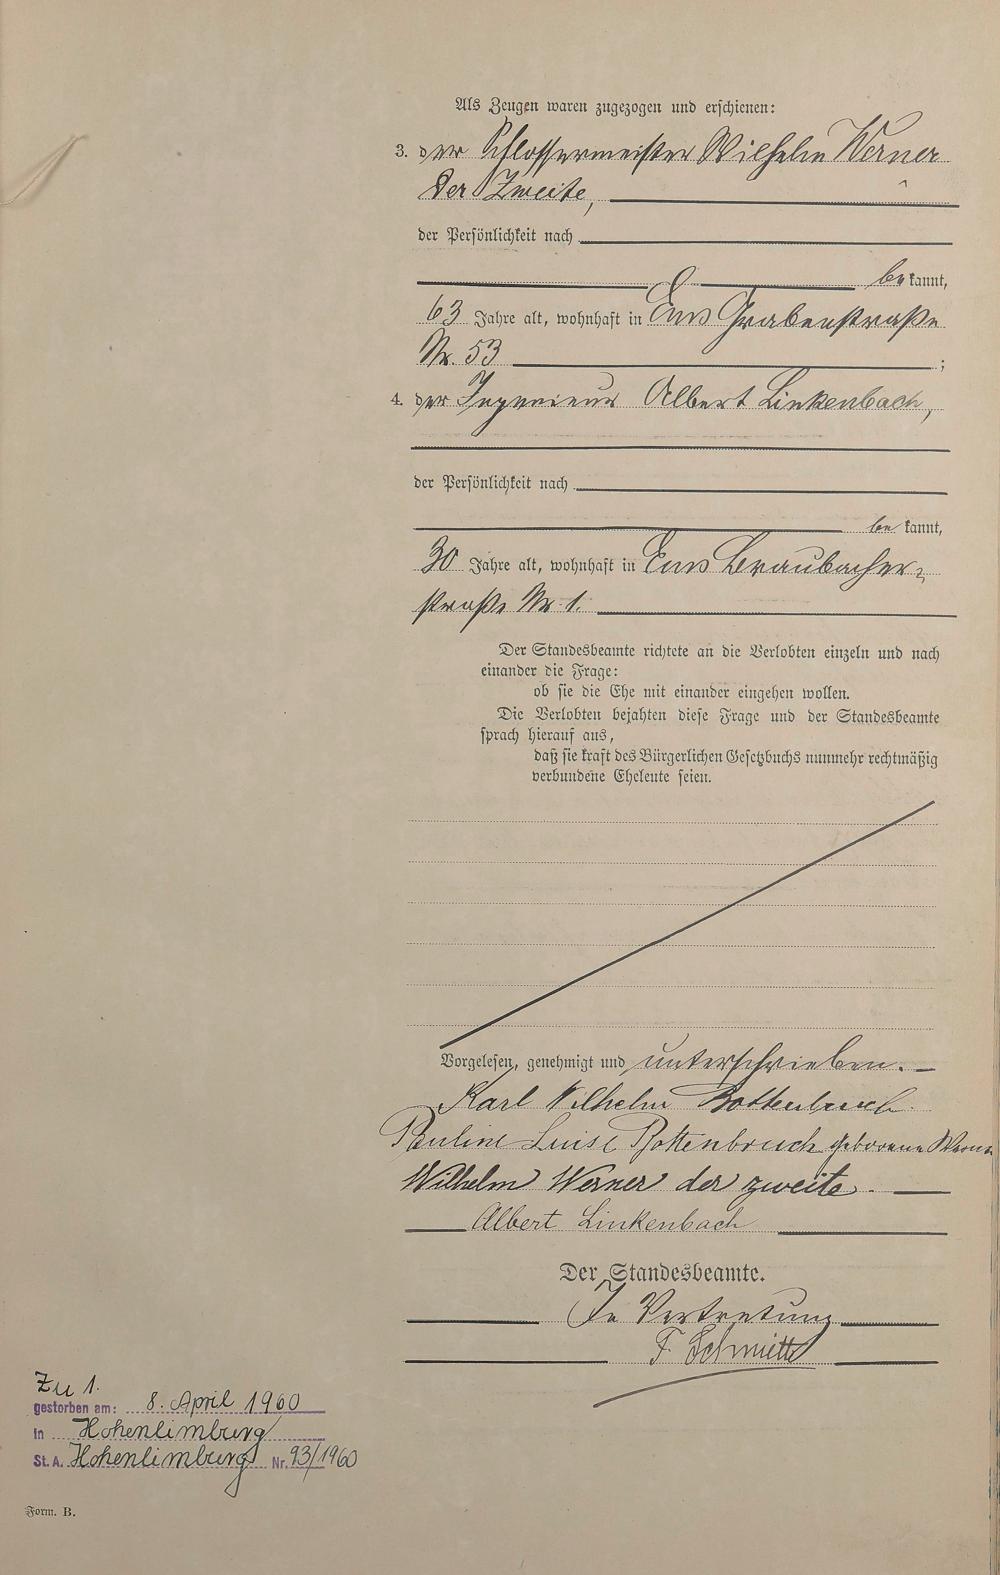 Als Zeugen waren zugezogen und erschienen:
3. der Schlossermeister Wilhelm Werner
der Zweite,
der Persönlichkeit nach
bekannt,
63 Jahre alt, wohnhaft in Ems Grabenstraße
Nr. 53 ;
4. der Ingenieur Albert Linkenbach,
der Persönlichkeit nach
bekannt,
30 Jahre alt, wohnhaft in Ems Braubacher-
straße Nr 1.
Der Standesbeamte richtete an die Verlobten einzeln und nach
einander die Frage:
ob sie die Ehe mit einander eingehen wollen.
Die Verlobten bejahten diese Frage und der Standesbeamte
sprach hierauf aus,
daß sie kraft des Bürgerlichen Gesetzbuchs nunmehr rechtmäßig
verbundene Eheleute seien.
Vorgelesen, genehmigt und unterschrieben.
Karl Wilhelm Bottenbruch.
Pauline Luise Bottenbruch geborene Werner
Wilhelm Werner der zweite.
Albert Linkenbach
Der Standesbeamte.
In Vertretung
F. Schmitt
Zu 1.
gestorben am: 8. April 1960
in Hohenlimburg
St. A. Hohenlimburg Nr. 93/1960
Form. B.